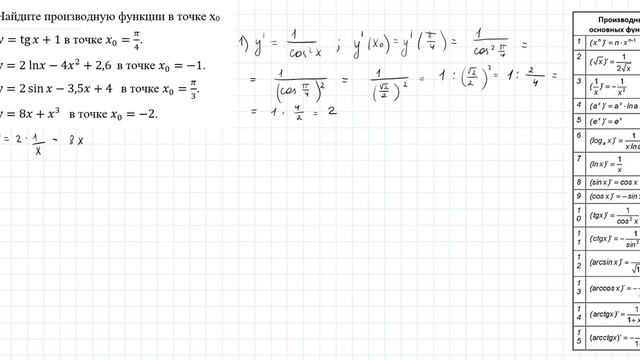 Найдите производную функции в точке x₀
y = tg x + 1 в точке x₀ = π/4.
y = 2 lnx − 4x² + 2,6 в точке x₀ = −1.
y = 2 sin x − 3,5x + 4 в точке x₀ = π/3.
y = 8x + x³ в точке x₀ = −2.
' = 2 · 1/x − 8x
1) y' = 1/cos² x ; y'(x₀) = y'(π/4) = 1/cos² π/4 =
= 1/(cos π/4)² = 1/(√2/2)² = 1 : (√2/2)² = 1 : 2/4 =
= 1 · 4/2 = 2
основных фун
1 (xⁿ)' = n · xⁿ⁻¹
2 (√x)' = 1/2√x
3 (1/x)' = − 1/x²
4 (aˣ)' = aˣ · ln
5 (eˣ)' = eˣ
6 (logₐ x)' = 1/x ln a
7 (ln x)' = 1/x
8 (sin x)' = cos x
9 (cos x)' = − sin x
10 (tgx)' = 1/cos² x
11 (ctgx)' = − 1/sin²
12 (arcsin x)' = 1/√1
13 (arccos x)' = −
14 (arctgx)' = 1/1 + x
15 (arcctgx)' = −